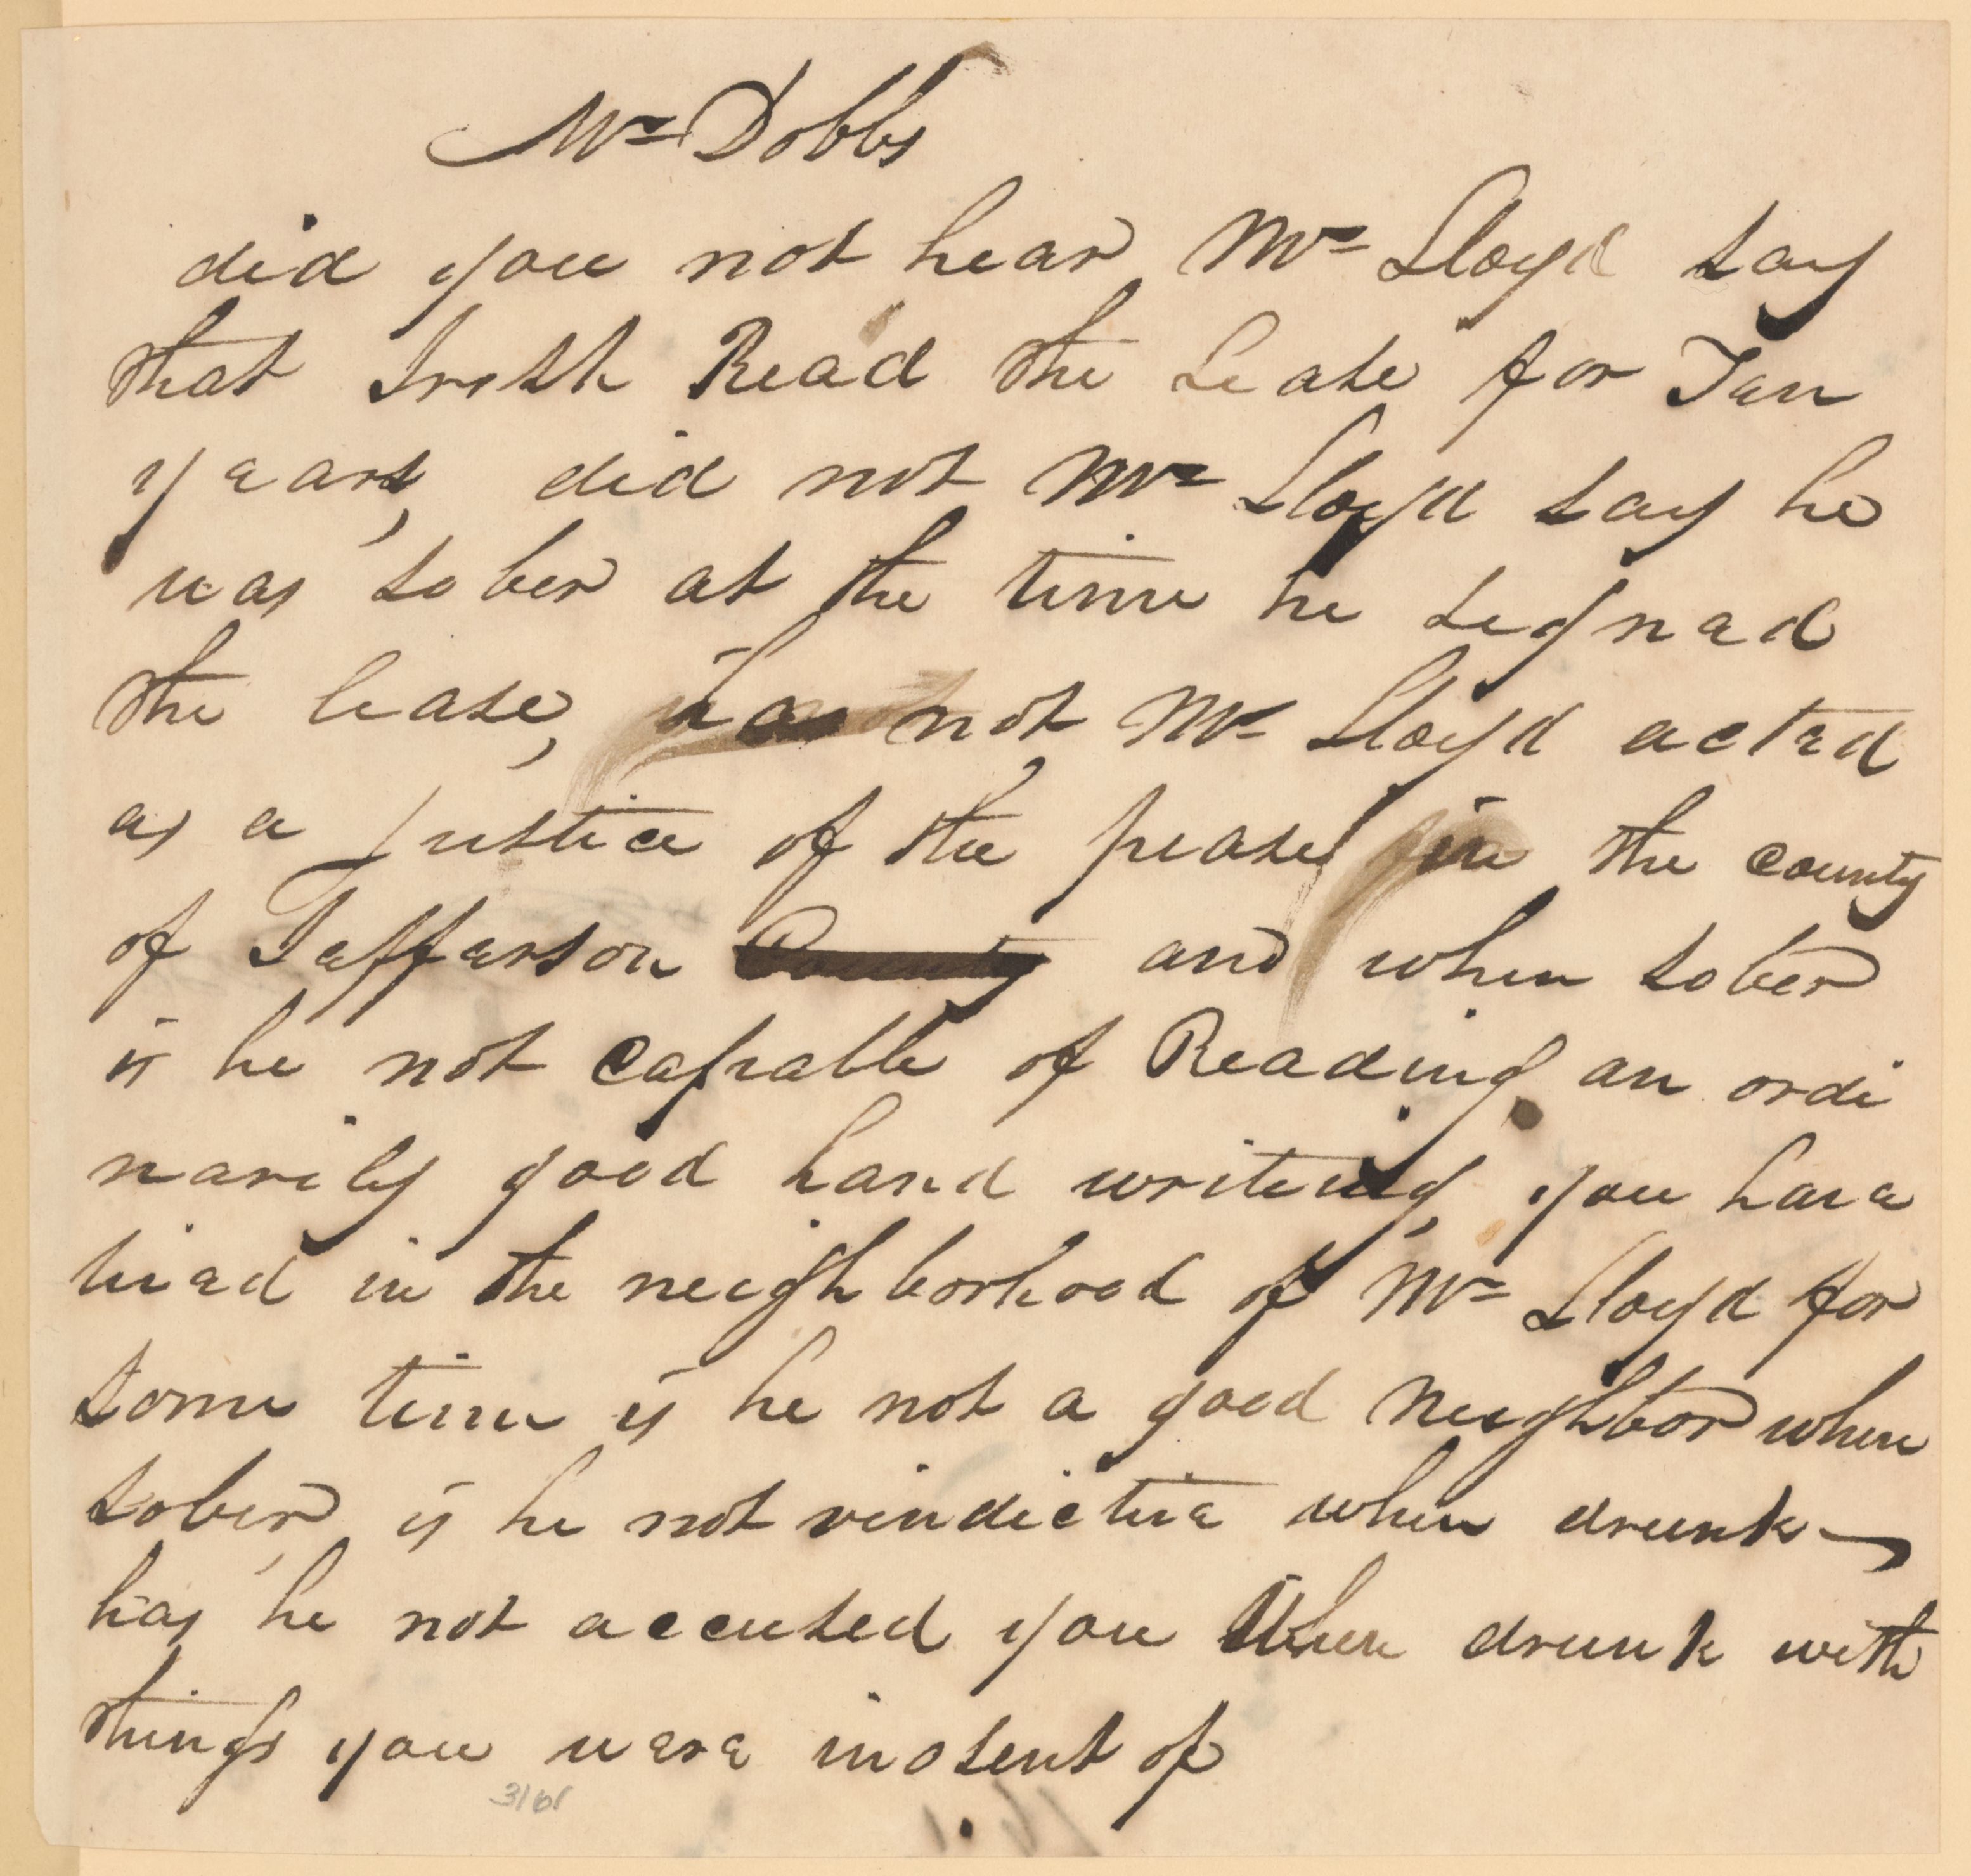 Mr Dobbs
did you not hear Mr Lloyd say
that Read the Lease for Ten
years, did not Mr Lloyd say he
was sober at the time he signed
the lease, has not Mr Lloyd acted
as a justice of the pease in the county
of Jefferson County and when sober
is he not capable of Reading an ordi
narily good hand writing, you have
lived in the neighborhood of Mr Lloyd for
some time is he not a good neighbor when
sober, is he not vindictive when drunk
has he not accused you When drunk with
things you were inosent of
3161